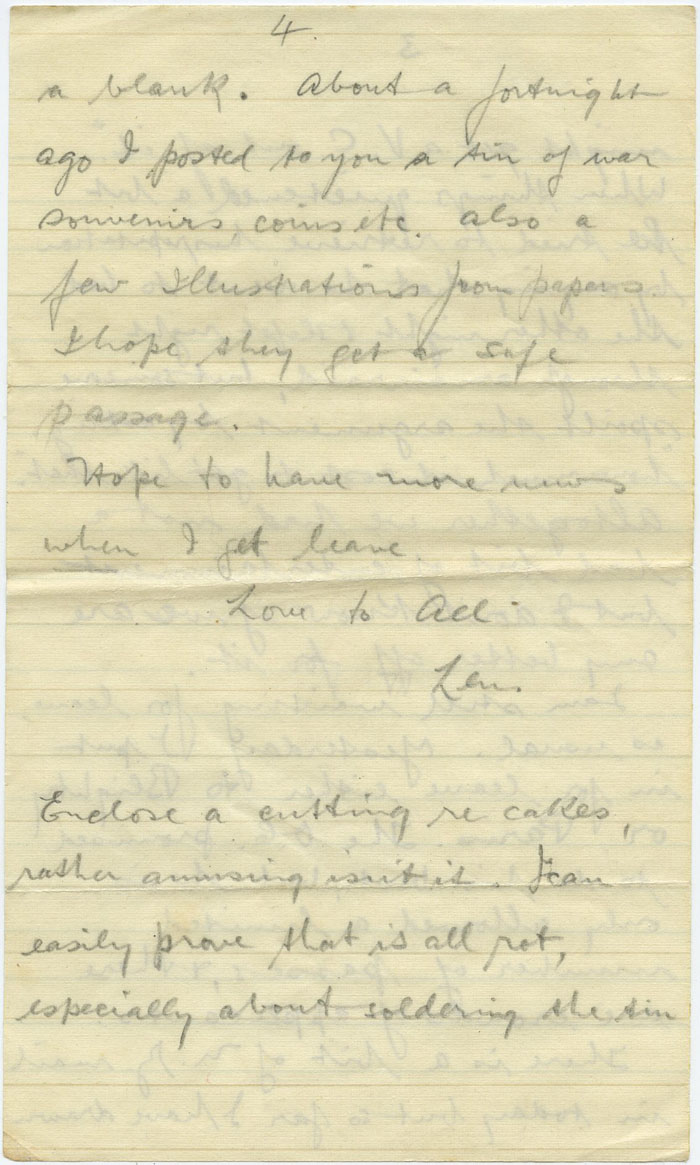 4.
a blank. About a fortnight
ago I posted to you a tin of war
souvenirs coins etc. also a
few Illustrations from papers.
I hope they get a safe
passage.
Hope to have more news
when I get leave
Love to All
Len.
Enclose a cutting re cakes,
rather amusing isn't it. I can
easily prove that is all rot,
especially about soldering the tin